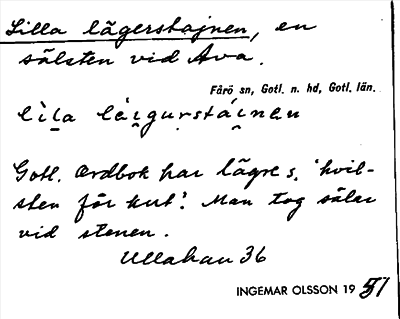 Lilla lägerstajnen, en
sälsten vid Ava.
Fårö sn, Gotl. n. hd, Gotl. län.
Gotl. Ordbok har lägre s. 'hvil-
sten för kut'. Man tog sälar
vid stenen.
Ullahau 36
INGEMAR OLSSON 19 51